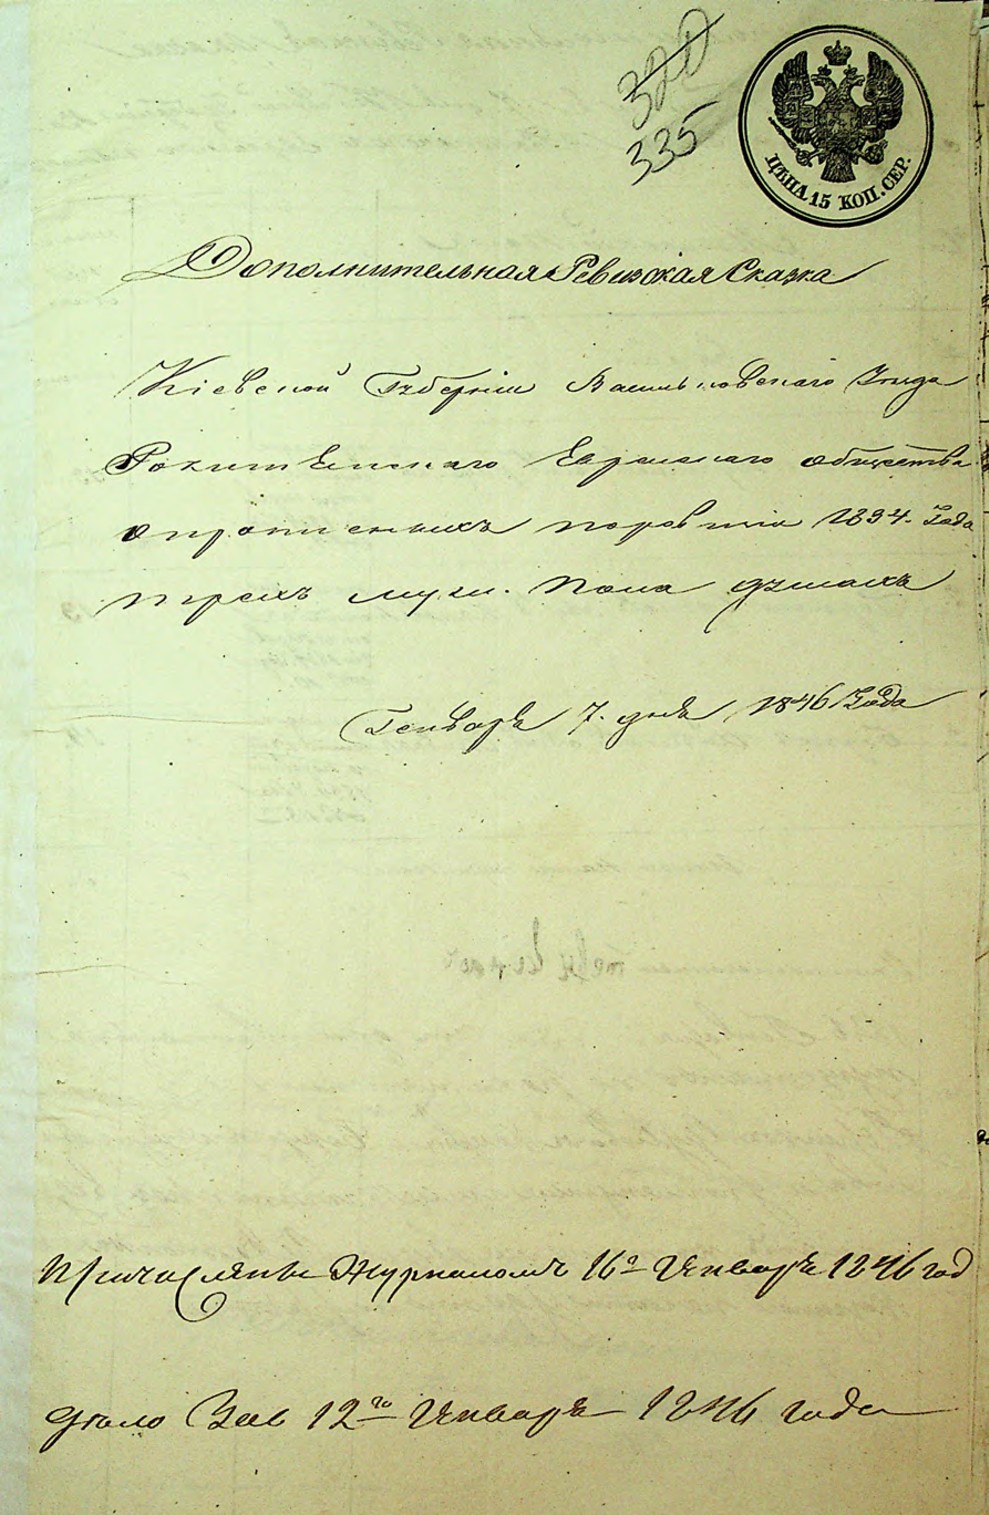 335
ЦѢНА 15 КОП. СЕР.
Дополнительная Ревизская Сказка
Кіевской Губерніи Васильковскаго Уезда
Рокитянскаго Еврейскаго общества
о прописныхъ по ревизіи 1834. Года
трехъ муж. пола душахъ
Генваря 7. дня 1846 Года
Причислены Журналомъ 16го Января 1846 год
12го Января 1846 года